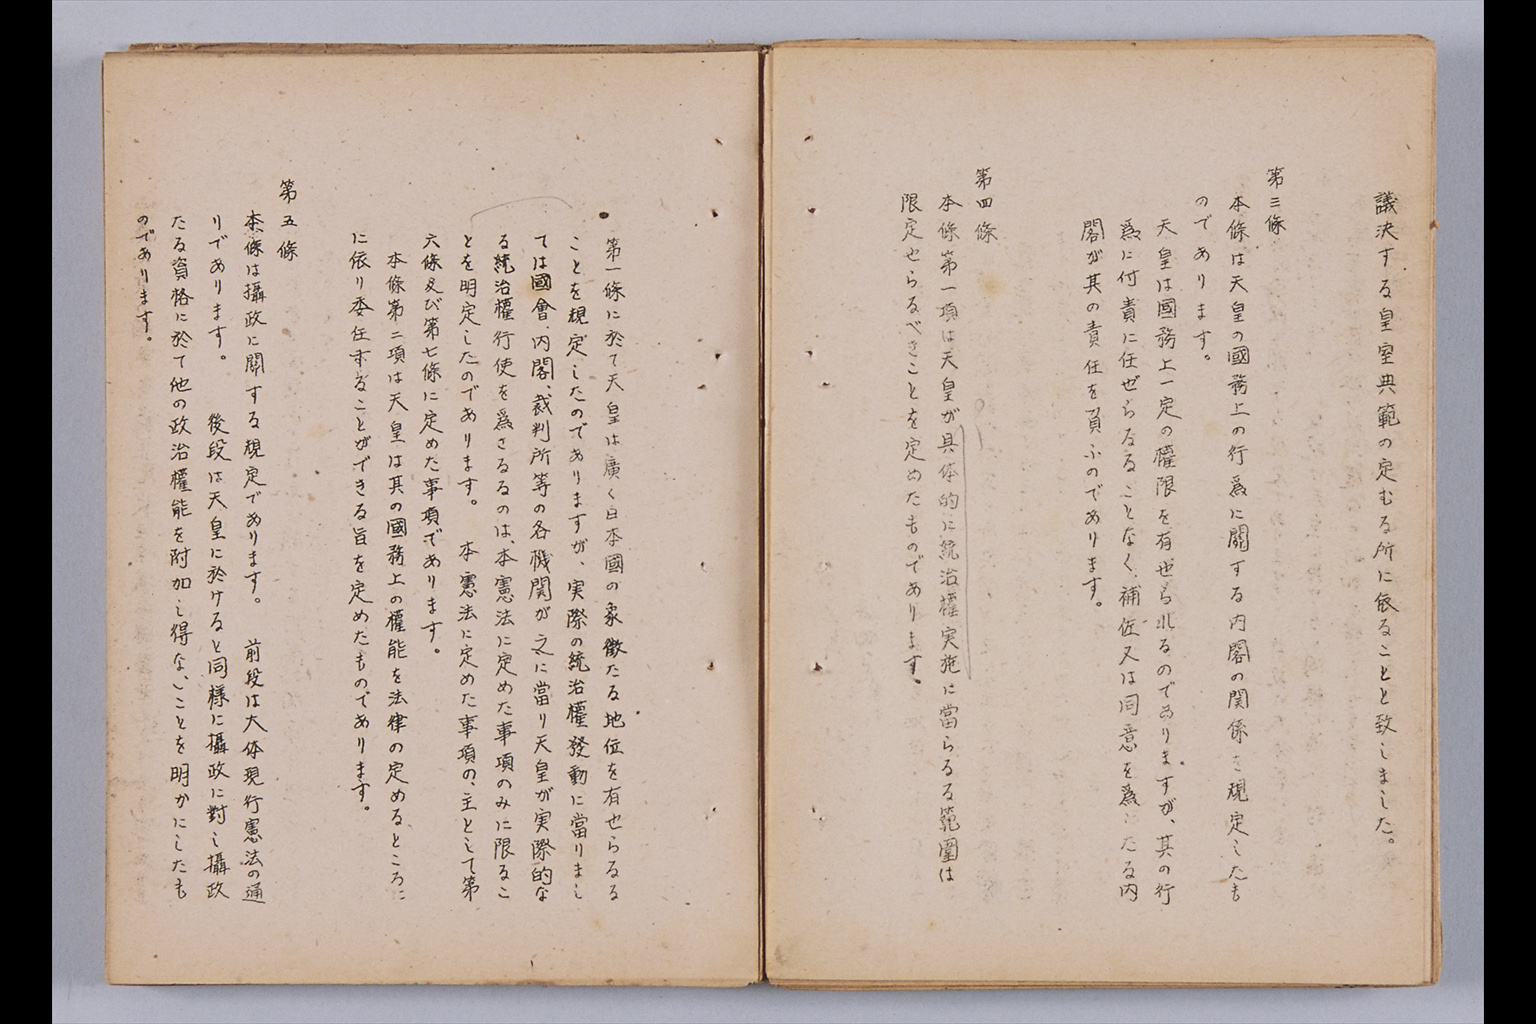 議決する皇室典範の定むる所に依ることと致しました。
第三條
本條は天皇の國務上の行爲に關する内閣の関係を規定したも
のであります。
天皇は國務上一定の權限を有せられるのでありますが、其の行
爲に付責に任ぜらるることなく、補佐又は同意を爲したる内
閣が其の責任を負ふのであります。
第四條
本條第一項は天皇が具体的に統治權実施に當らるる範圍は
限定せらるべきことを定めたものであります。
第一條に於て天皇は廣く日本國の象徴たる地位を有せらるる
ことを規定したのでありますが、実際の統治權發動に當りまし
ては國會、内閣、裁判所等の各機関が之に當り天皇が実際的な
る統治權行使を爲さるるのは、本憲法に定めた事項のみに限るこ
とを明定したのであります。　本憲法に定めた事項の、主として第
六條及び第七條に定めた事項であります。
本條第二項は天皇は其の國務上の權能を法律の定めるところに
に依り委任することができる旨を定めたものであります。
第五條
本條は攝政に關する規定であります。　前段は大体現行憲法の通
りであります。　後段は天皇に於けると同様に攝政に對し攝政
たる資格に於て他の政治權能を附加し得ないことを明かにしたも
のであります。